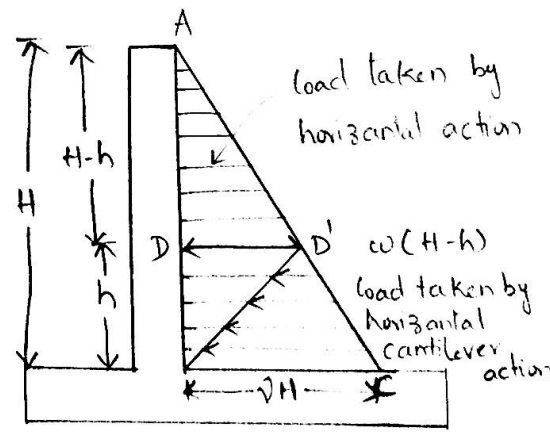 A
load taken by
horizantal action
H-h
H
D
D'
w(H-h)
h
load taken by
horizantal
cantilever
action
γH
C